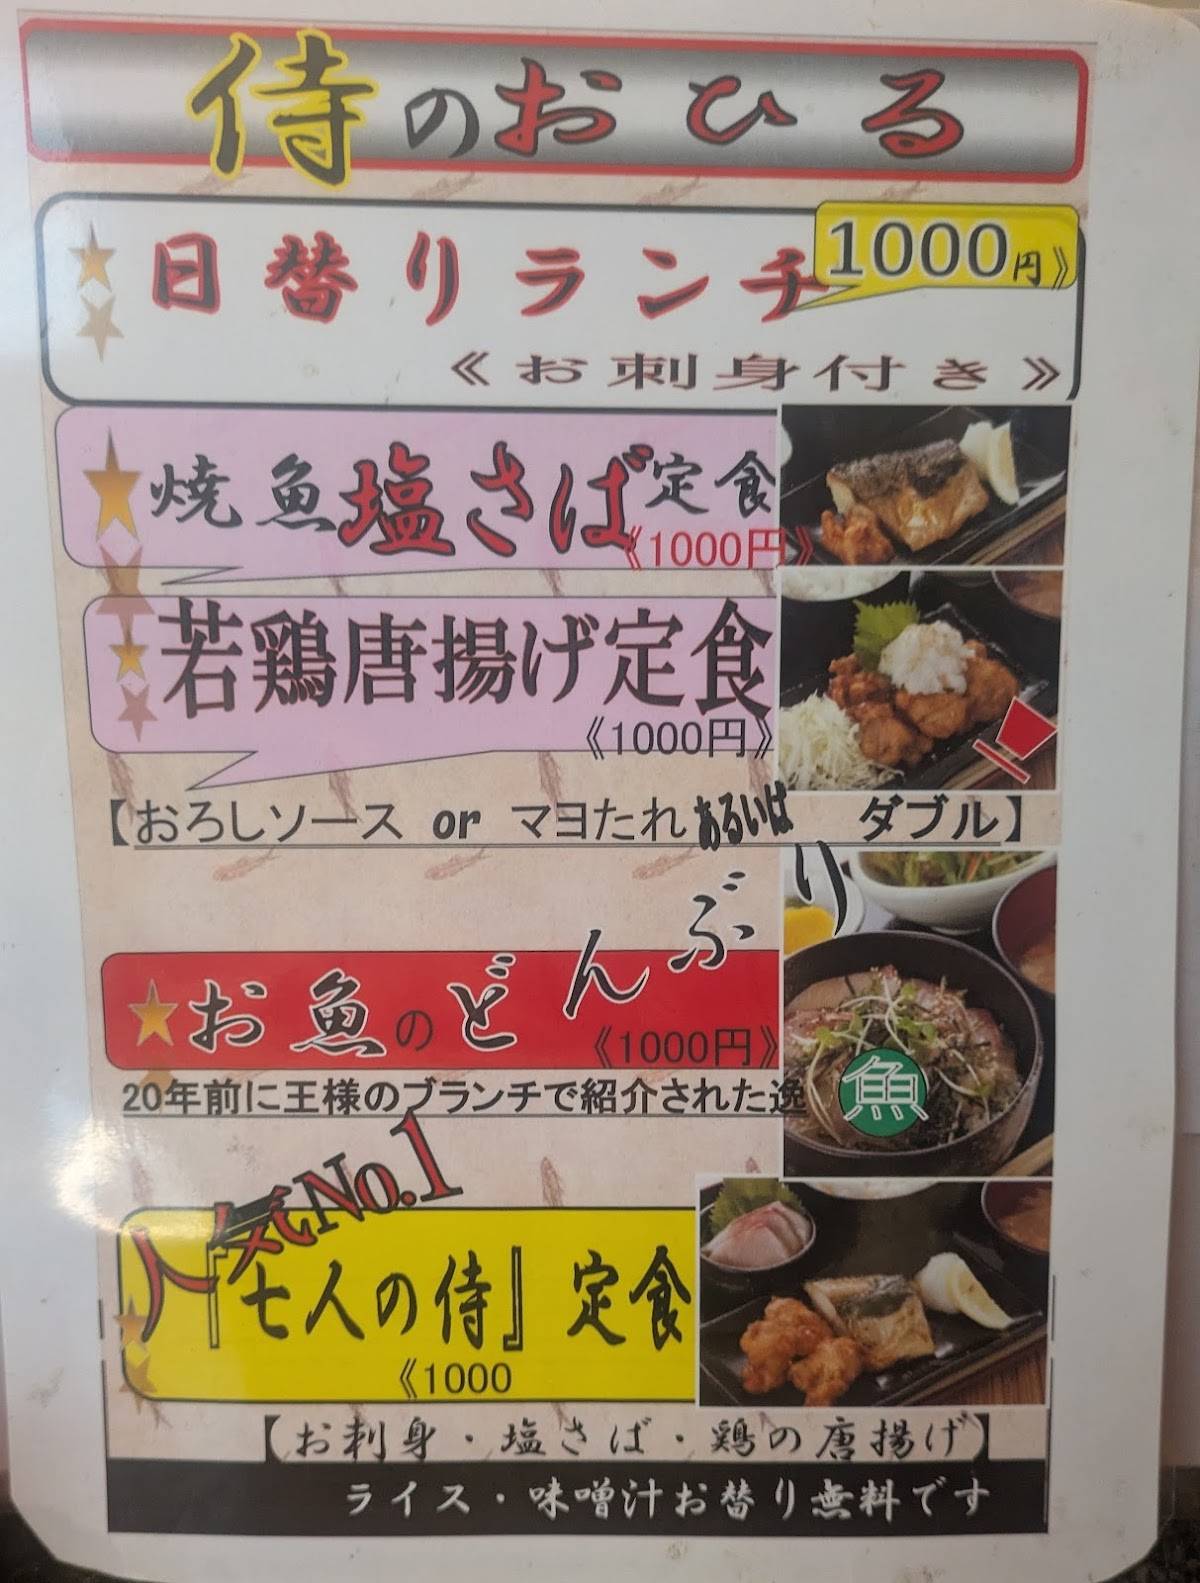 侍のおひる
日替りランチ 1000円》
《お刺身付き》
焼魚塩さば定食
《1000円》
若鶏唐揚げ定食
《1000円》
【おろしソース or マヨたれ あるいは ダブル】
お魚のどんぶり
《1000円》
20年前に王様のブランチで紹介された逸
魚
人気No.1
『七人の侍』定食
《1000
【お刺身・塩さば・鶏の唐揚げ】
ライス・味噌汁お替り無料です